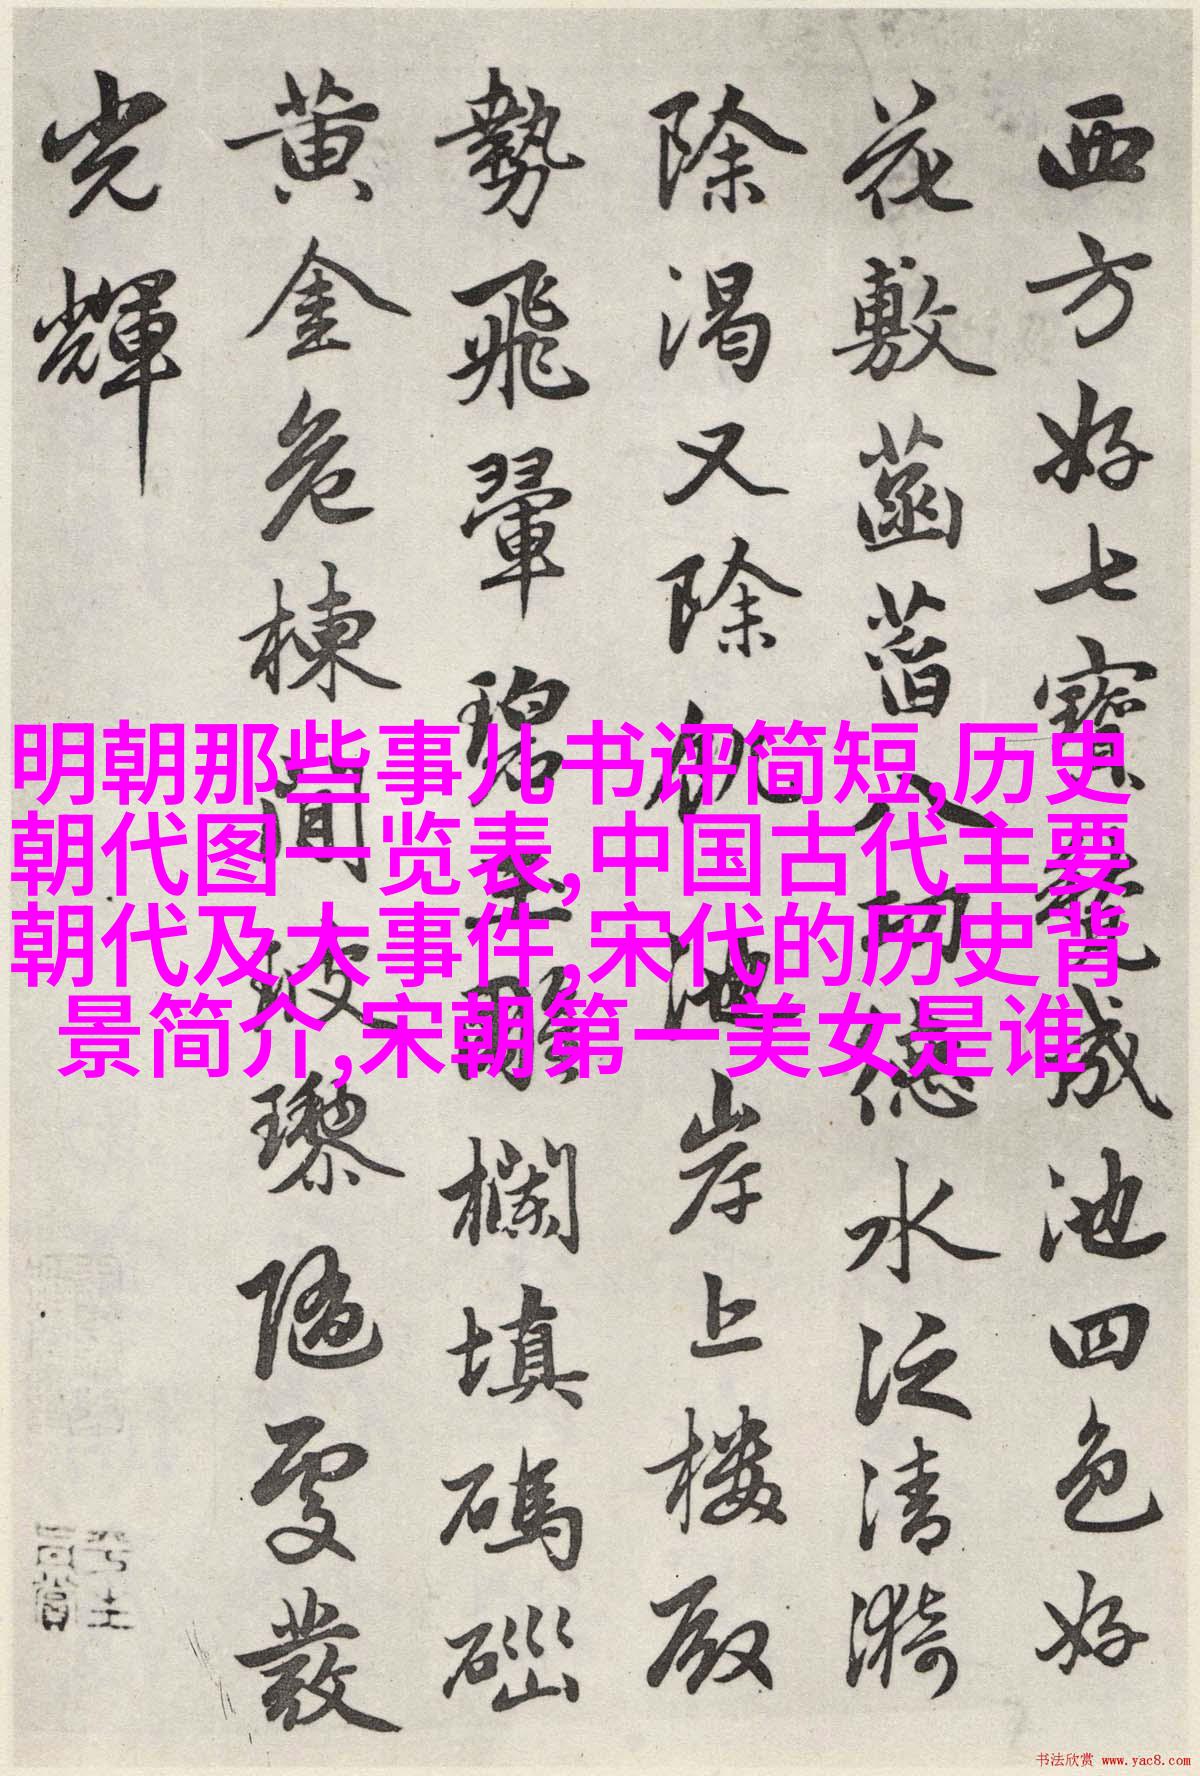 西方好七寶甃成池四色好
花敷菡萏八功德水泛清漪
除渴又除飢池岸上樓殿
勢飛翬碧玉雕欄填碼碯
黄金危棟間玻瓈隨處發
光輝
明朝那些事儿书评简短,历史
朝代图一览表,中国古代主要
朝代及大事件,宋代的历史背
景简介,宋朝第一美女是谁
书法欣赏 www.yac8.com